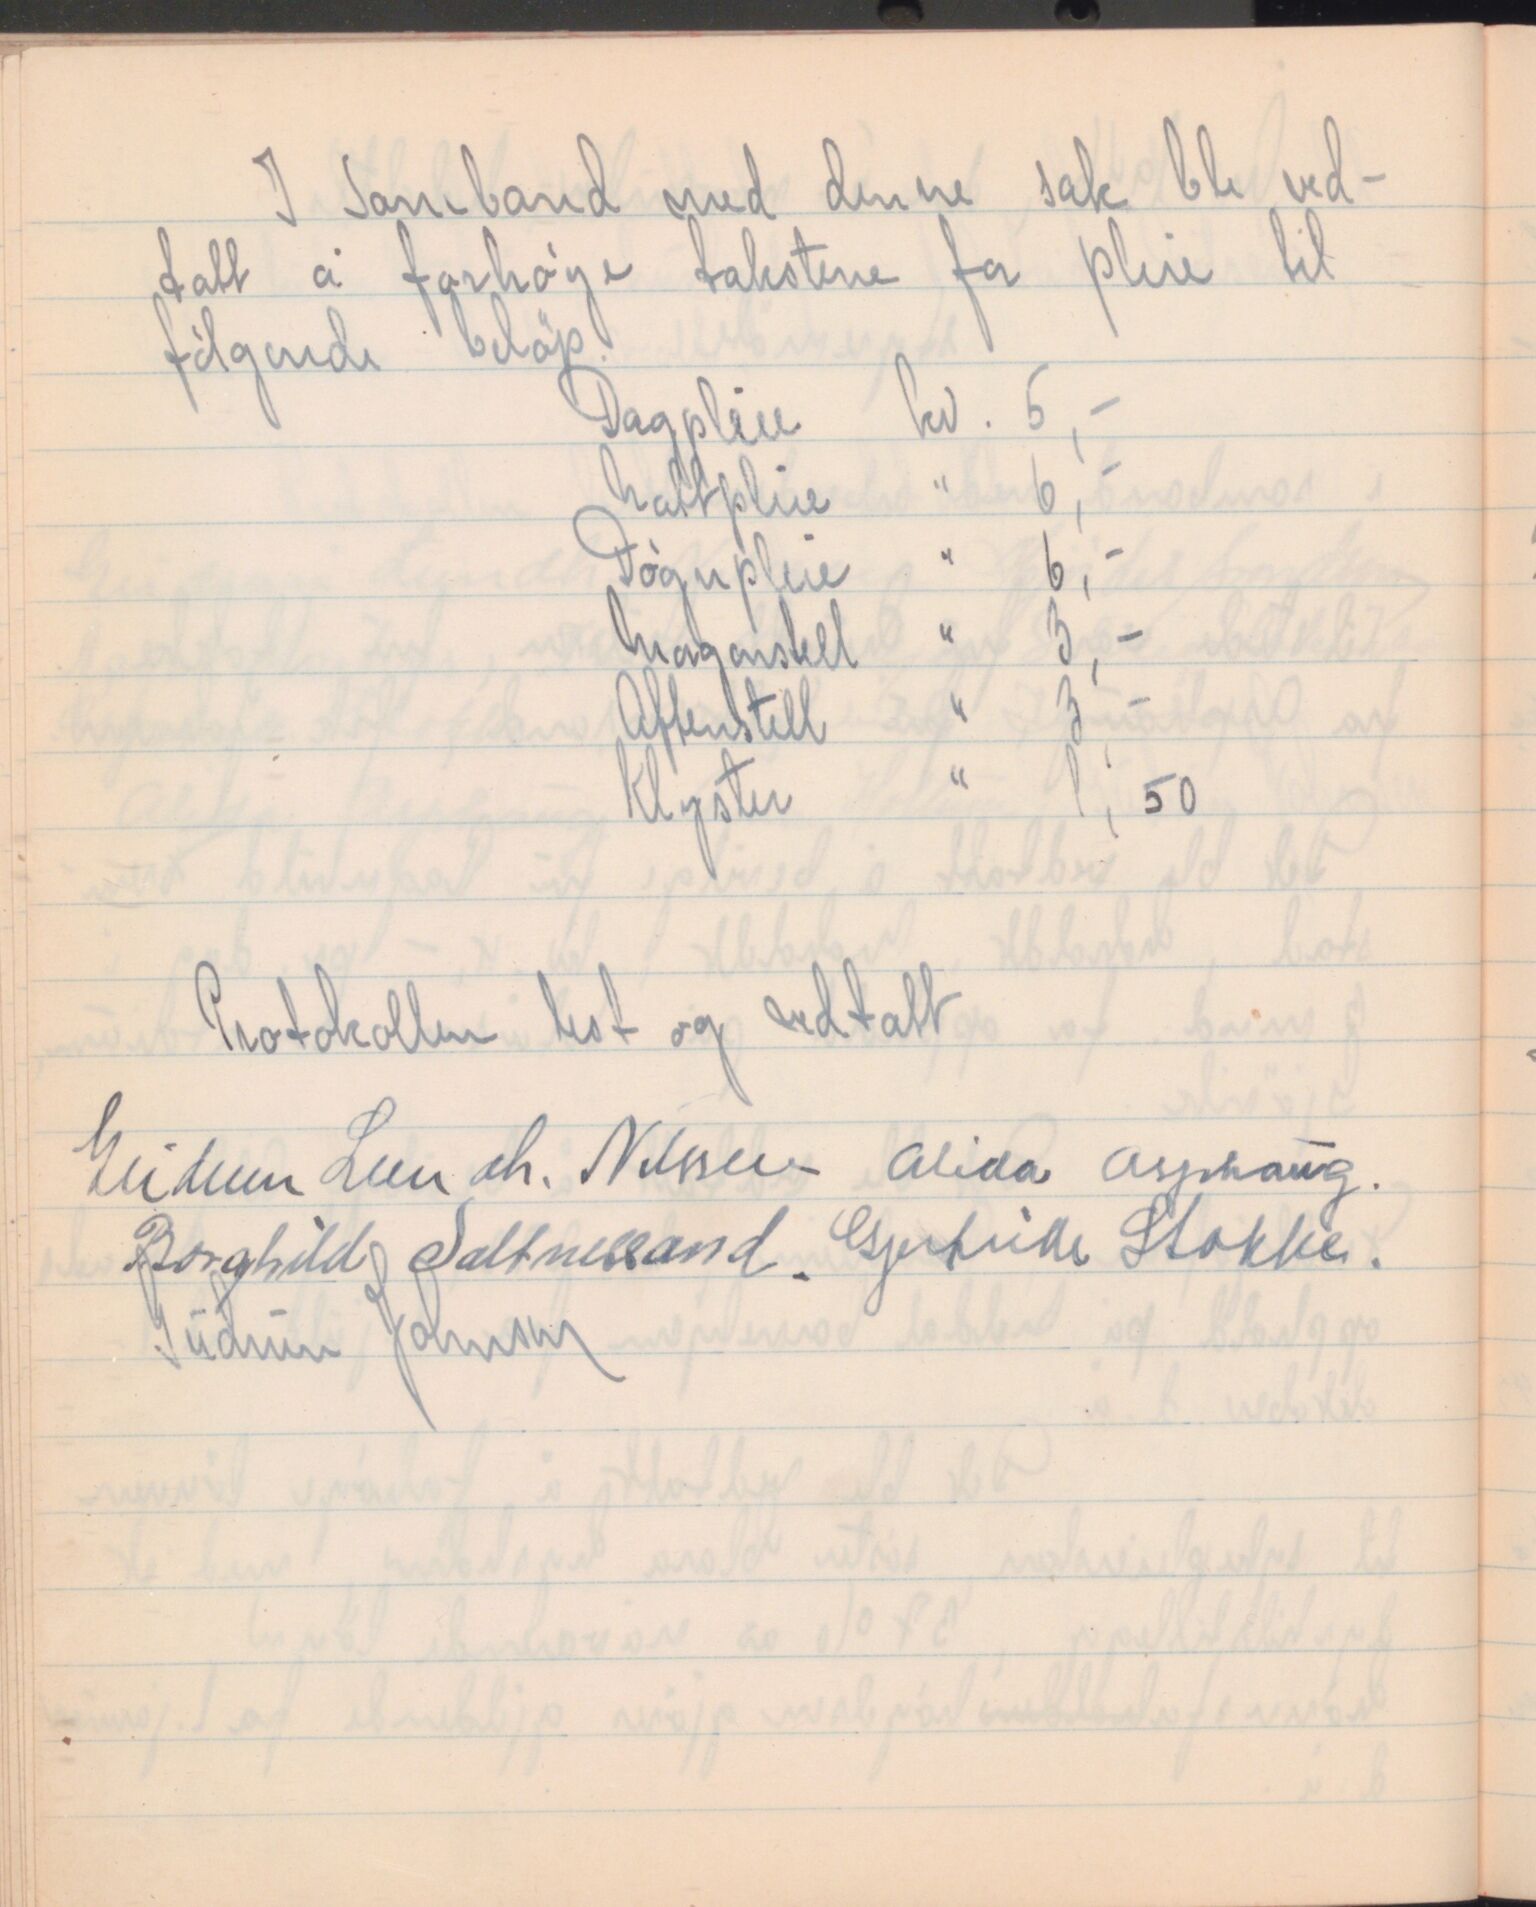 I samband med denne sak ble ved-
tatt å forhøye takstene for pleie til
følgende beløp.
Dagpleie kr. 5,-
Nattpleie " 6,-
Døgnpleie " 6,-
Morgenstell " 3,-
Aftenstell " 3,-
Klyster " 1,50
Protokollen lest og vedtatt
Nilssen Alida Asphaug.
Borghild Saltnessand. Gjertrude Stokke.
Gudrun Johnsen